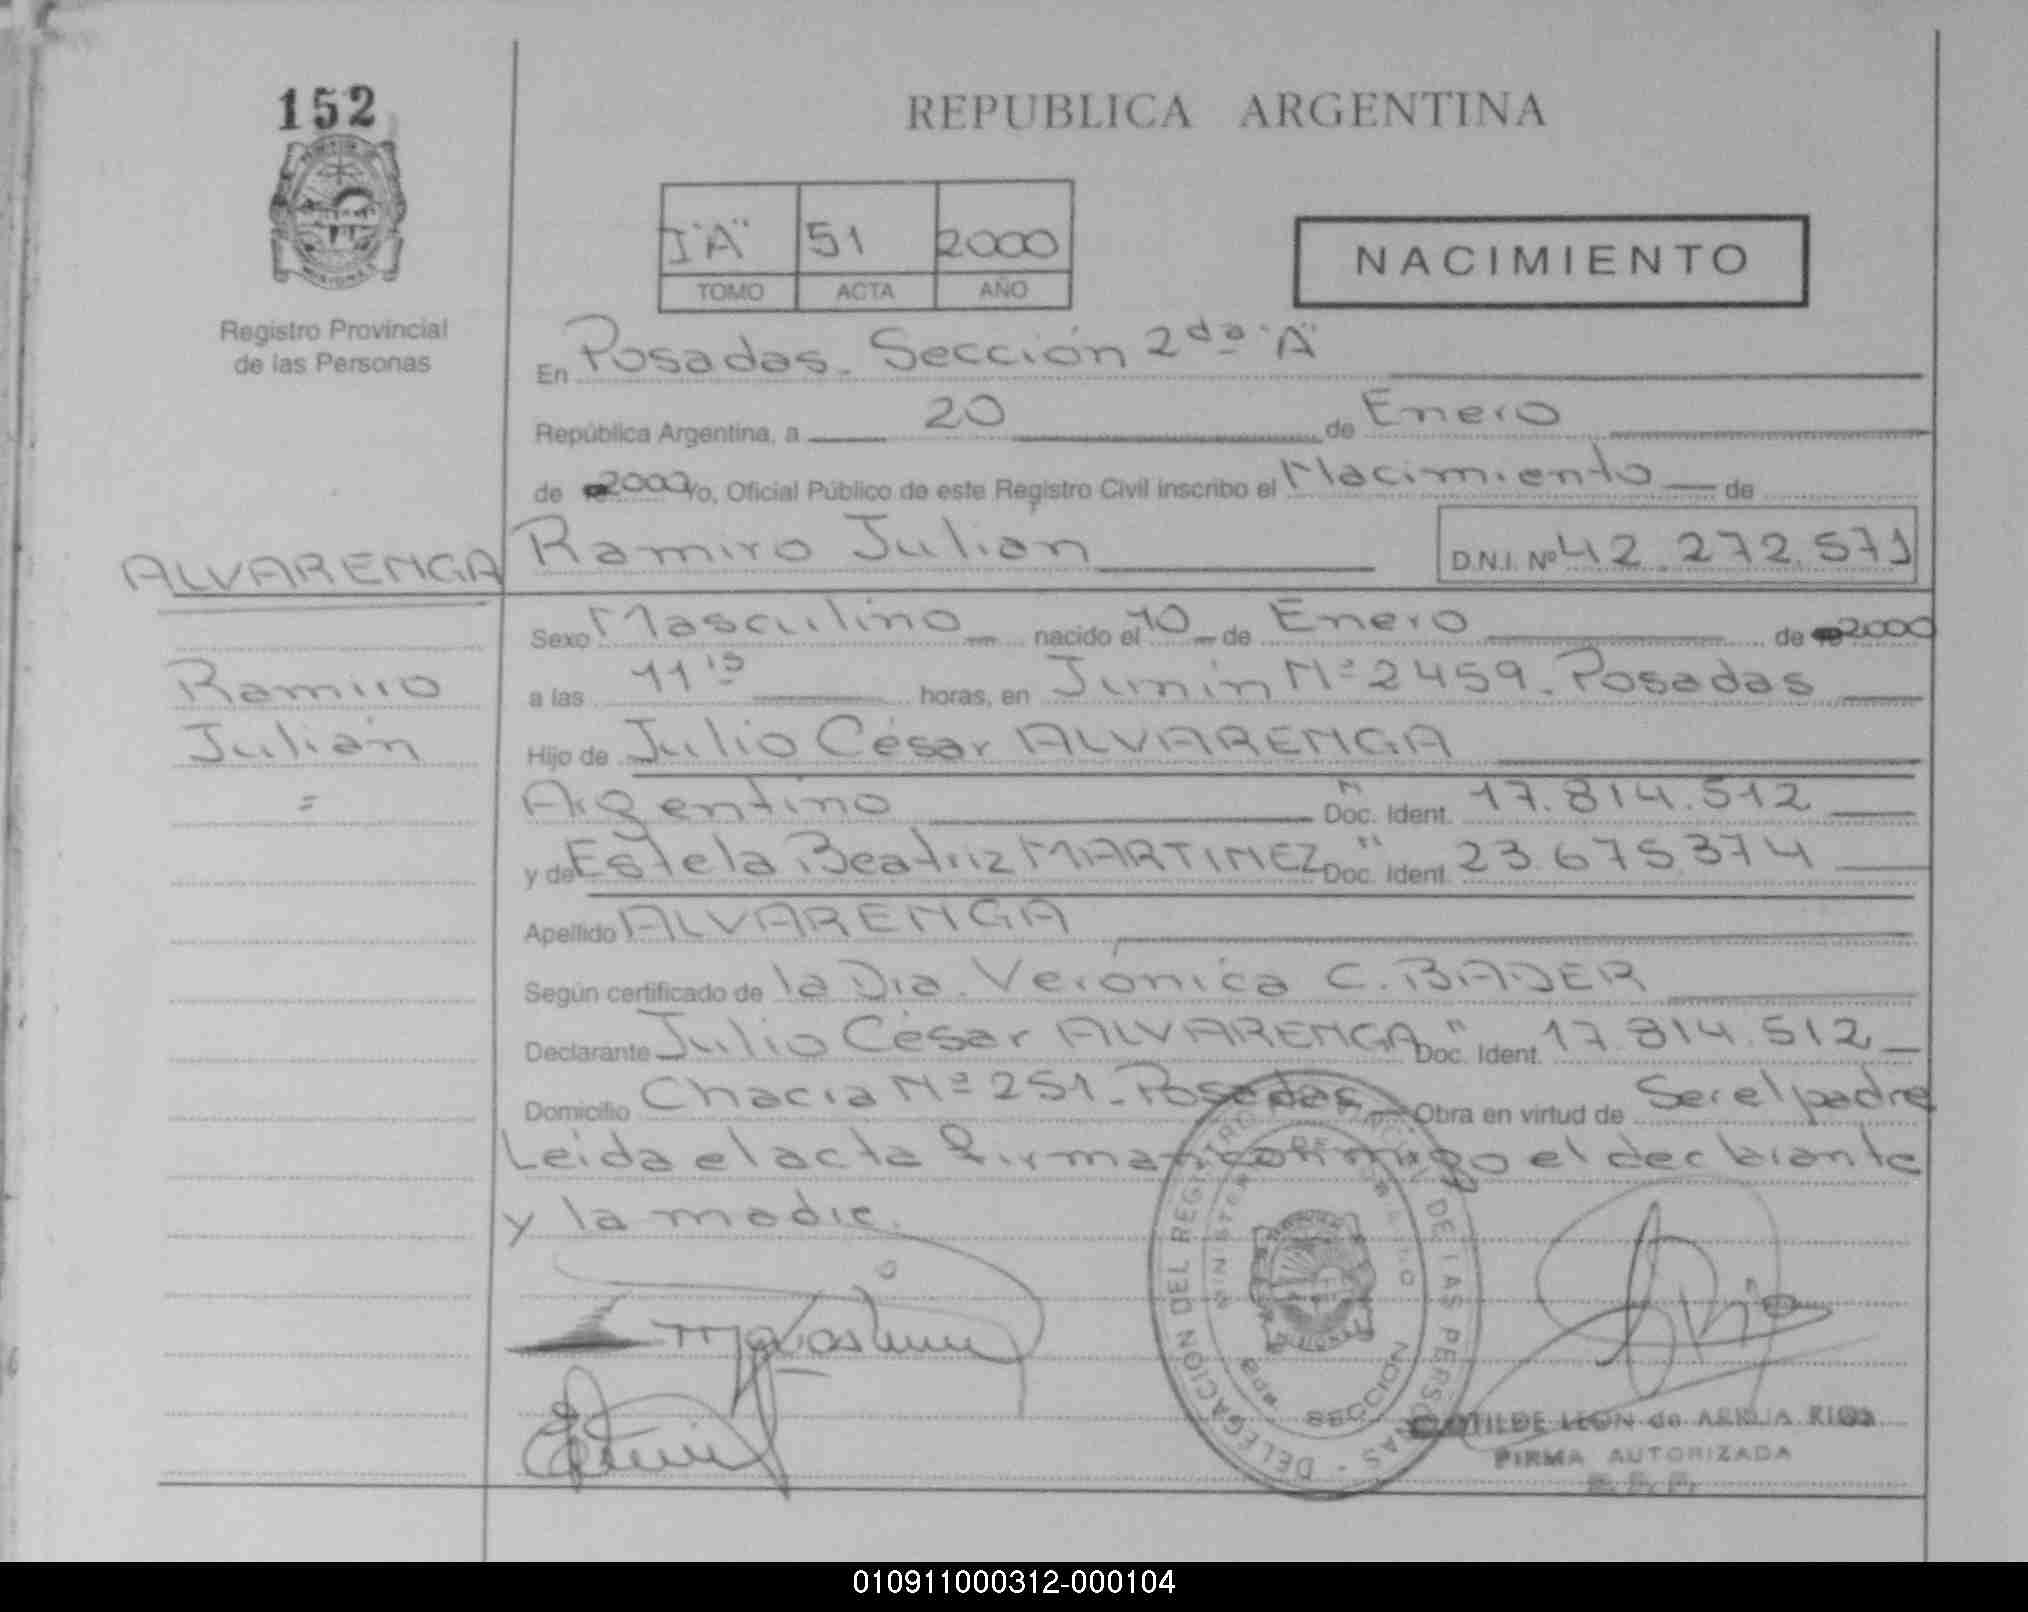 152
REPUBLICA ARGENTINA
I "A" 51 2000
TOMO ACTA AÑO
NACIMIENTO
Registro Provincial
de las Personas
En Posadas - Sección 2da "A"
República Argentina, a 20 de Enero
de 2000 Yo, Oficial Público de este Registro Civil inscribo el Nacimiento de
ALVARENGA Ramiro Julián D.N.I. Nº 42.272.571
Sexo Masculino nacido el 10 de Enero de 2000
Ramiro
a las 11 15 horas, en Junín Nº 2459 - Posadas
Julián
Hijo de Julio César ALVARENGA
=
Argentino Doc. Ident. 17.814.512
y de Estela Beatriz MARTINEZ Doc. Ident. 23.675.374
Apellido ALVARENGA
Según certificado de la Dra. Verónica C. BADER
Declarante Julio César ALVARENGA Doc. Ident. 17.814.512
Domicilio Chacra Nº 251 - Posadas Obra en virtud de Ser el padre
Leida el acta firman conmigo el declarante
y la madre.
DELEGACION DEL REGISTRO PROVINCIAL DE LAS PERSONAS
MINISTERIO DE
2da SECCION
CLOTILDE LEON de RIOS
FIRMA AUTORIZADA
010911000312-000104